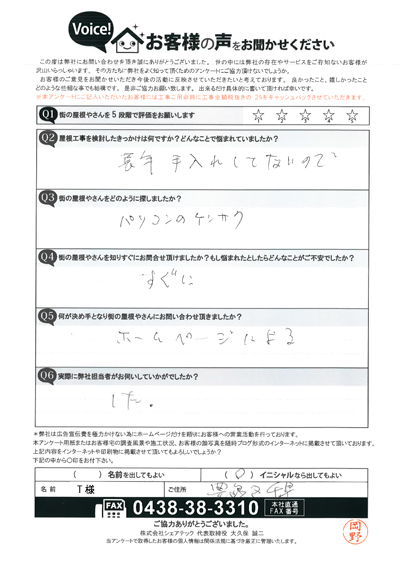 Voice!
お客様の声をお聞かせください
この度は弊社にお問い合わせを頂き誠にありがとうございました。世の中には弊社の存在やサービスをご存知ないお客様が
沢山いらっしゃいます。その方たちに弊社をよく知って頂くためのアンケートにご協力頂けないでしょうか。
お客様のご意見をお聞かせいただき今後の活動に反映させていただきたいと考えております。良かったこと。嬉しかったこと
どのような些細な事でも結構です。是非ご協力お願い致します。出来るだけ具体的に書いて頂ければ幸いです。
※本アンケートにご記入いただいたお客様には工事ご用命時に工事金額税抜きの 2%をキャッシュバックさせていただきます。
Q1 街の屋根やさんを 5 段階で評価をお願いします ☆ ☆ ☆ ☆ ☆
Q2 屋根工事を検討したきっかけは何ですか？どんなことで悩まれていましたか？
長年手入れしてないので
Q3 街の屋根やさんをどのように探しましたか？
パソコンのケンサク
Q4 街の屋根やさんを知りすぐにお問合せ頂けましたか？もし悩まれたとしたらどんなことがご不安でしたか？
すぐに
Q5 何が決め手となり街の屋根やさんにお問い合わせ頂きましたか？
ホームページによる
Q6 実際に弊社担当者がお伺いしていかがでしたか？
した。
＊弊社は広告宣伝費を極力かけない為にホームページだけを頼りにお客様への営業活動を行っております。
本アンケート用紙またはお客様宅の調査風景や施工状況、お客様の顔写真を随時ブログ形式のインターネットに掲載させて頂いております。
上記内容をインターネットや印刷物に掲載させて頂いてもよろしいでしょうか？
下記の中から〇印をお付下さい。
（ ）名前を出してもよい （〇）イニシャルなら出してもよい
名前 T様 ご住所
FAX 0438-38-3310 本社直通 FAX番号
ご協力ありがとうございました。
株式会社シェアテック 代表取締役 大久保 誠二
当アンケートで取得したお客様の個人情報は関係法規に基づき厳正に管理いたします。
岡野